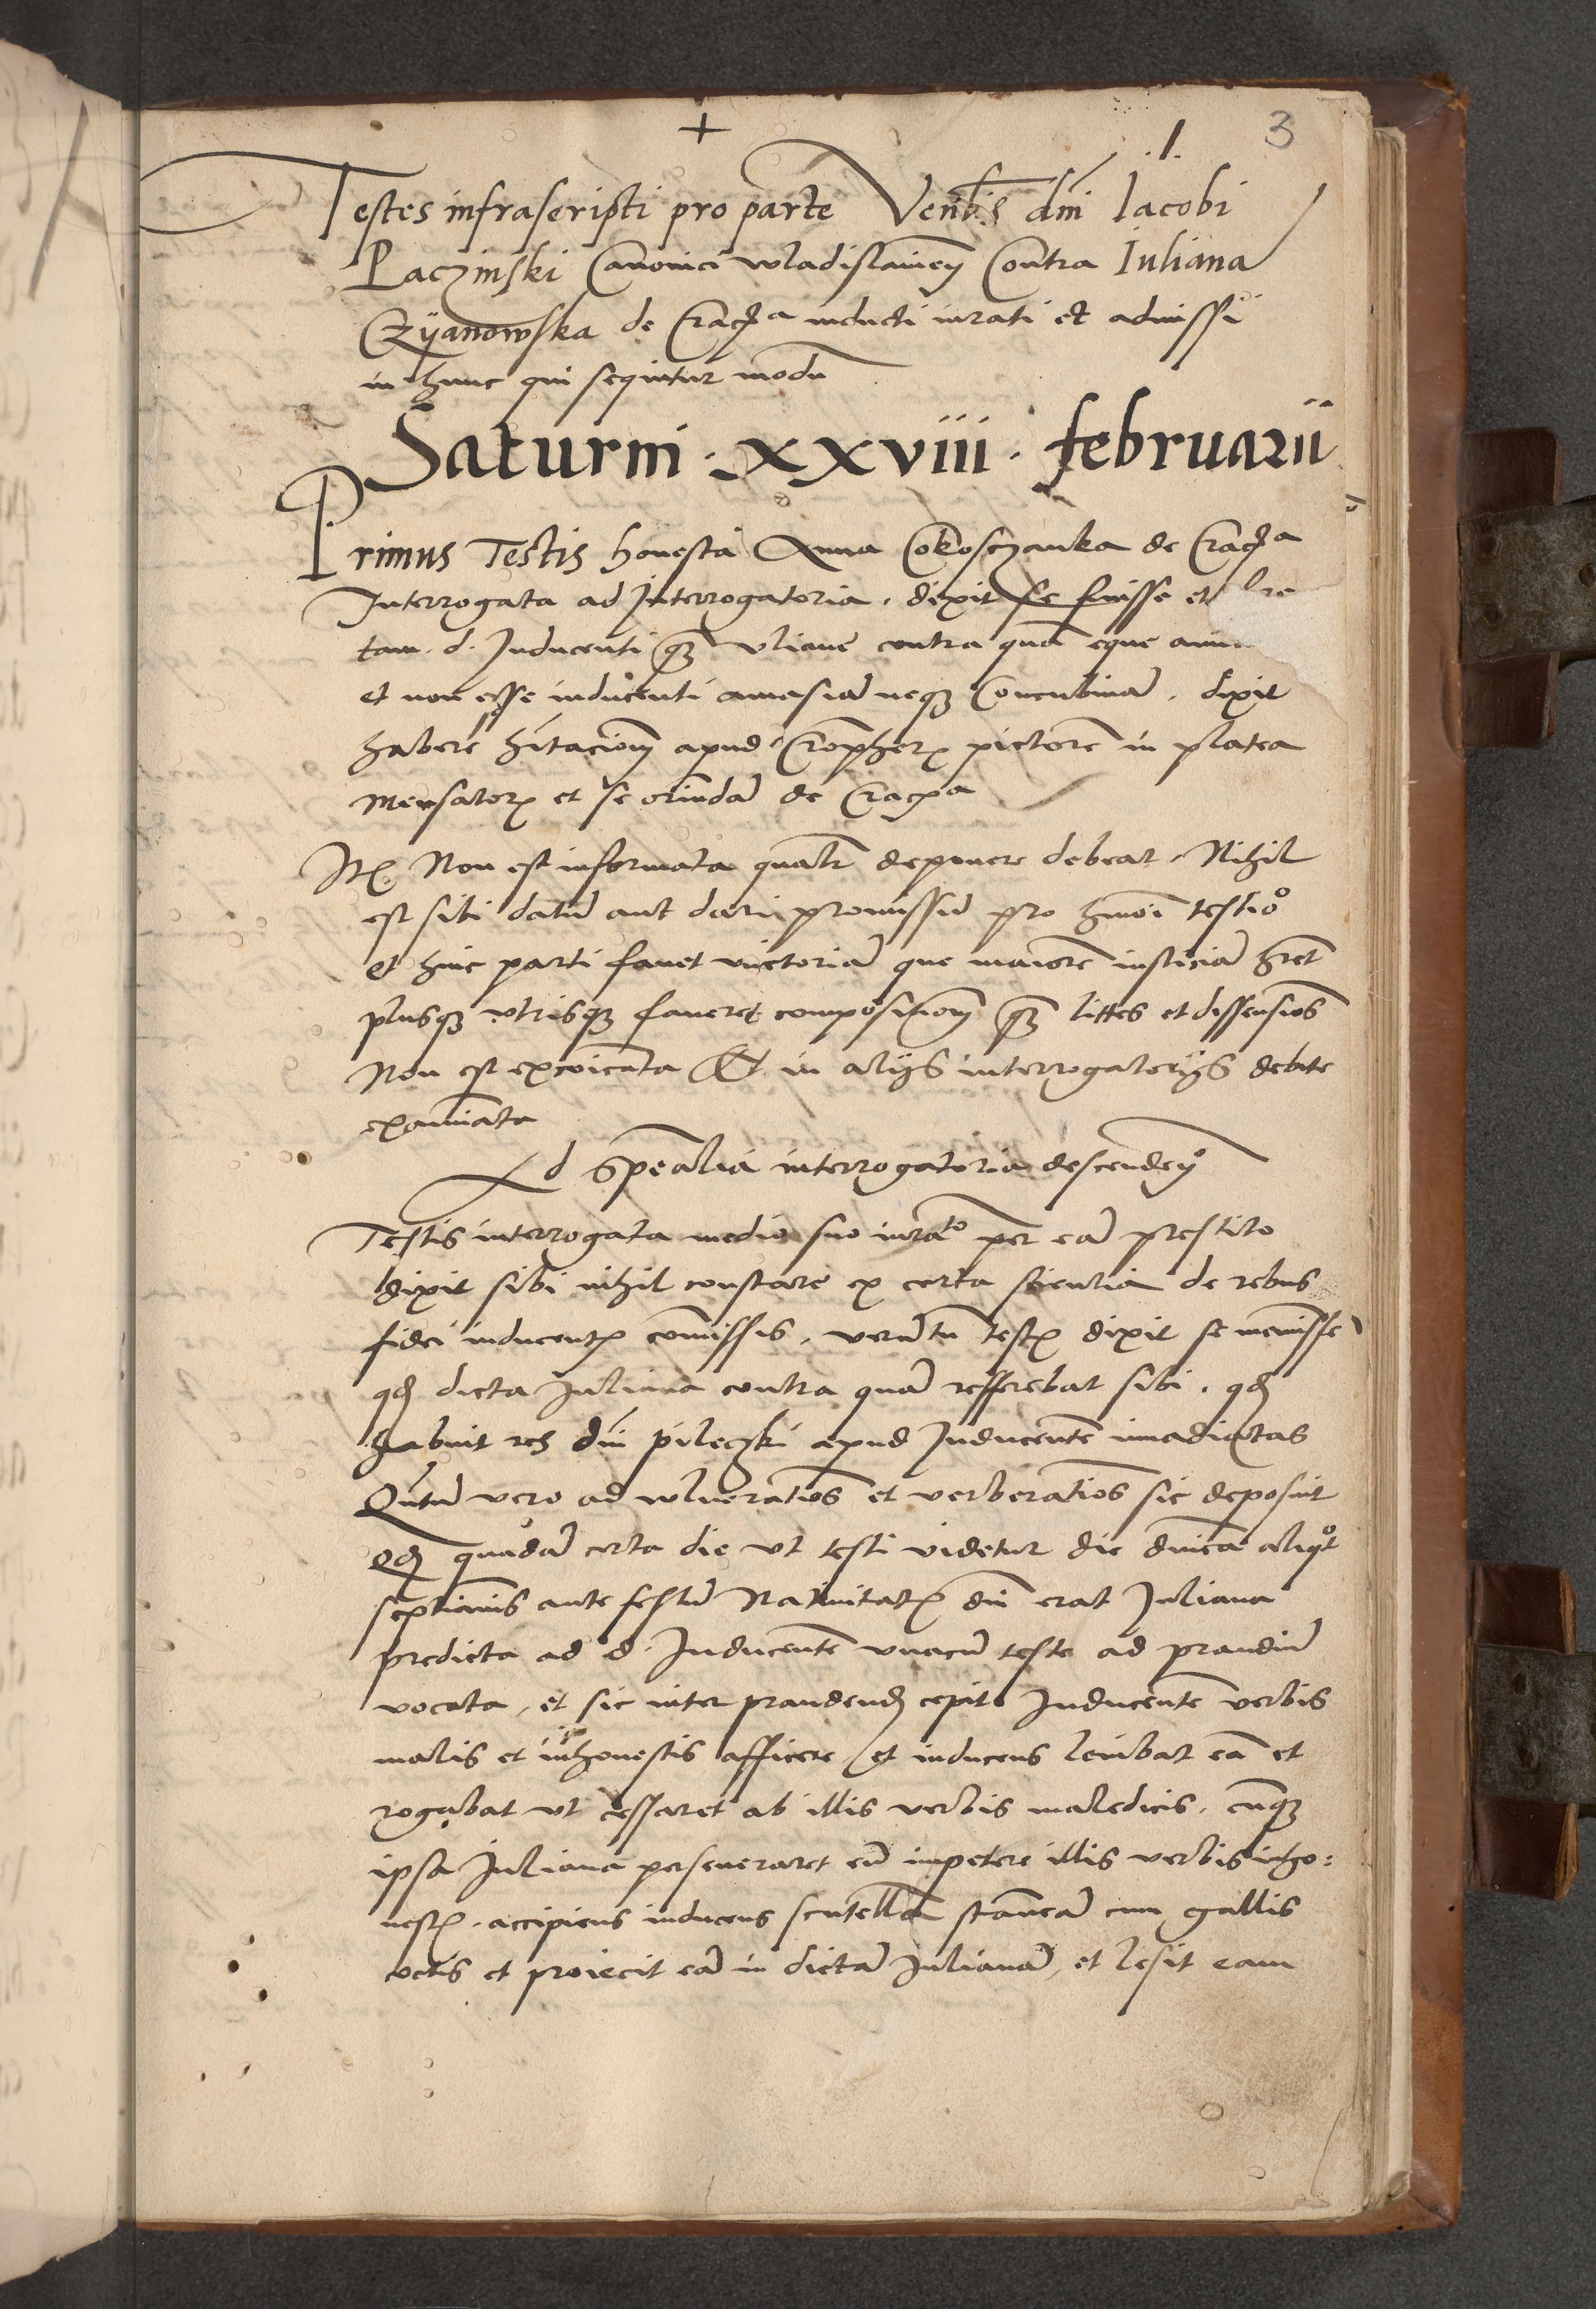 +
.1.
3
Testes infrascripti pro parte Venblis dni Iacobi
Paczinski Canonici wladislauien Contra Iuliana
Czyanowska de Craca inducti iurati et admissi
in hunc qui sequitur modu
Saturni · xxviii · februarii
Primus Testis honesta Anna Cokosczanka de Craca
Interrogata ad Interrogatoria . dixit se fuisse et
tam d. Inducenti q3 Iuliane contra qua eque
et non esse inducenti amasia neq3 Concubina . dixit
habere hitacionem apud Cropherum pictore in platea
mensatorum et se oriunda de Craca
Itm Non est informata qualr deponere debeat . Nihil
est sibi datu aut dari promissu pro hmoi testio
et huic parti fauet victoria que maiore iusticia hret
plusq3 vtrisq3 faueret composicionem q3 littes et dissensiones
Non est excoicata Et in alijs interrogatorijs debite
examinata
Ad spealia interrogatoria descenden
Testis interrogata medio suo iurato per ea prestito
dixit sibi nihil constare ex certa scientia de rebus
fidei inducentis comissis . verutn testis dixit se meminisse
qd dicta Iuliana contra qua refferebat sibi . qd
habuit res dni pileczki apud Inducente
Qutu vero ad vulneratioes et verberatioes sic deposuit
Qd quada certa die vt testi videtur die dnica aliqot
septimanis ante festu Natiuitatis dni erat Iuliana
predicta ad d. Inducente vnacu teste ad prandiu
vocata , et sic inter prandend cepit Inducente verbis
malis et inhonestis afficere / et inducens leuibat ea et
rogabat vt cessaret ab illis verbis maledicis . cunq3
ipsa Iuliana perseueraret eu impetere illis verbis inho:
nestis . accipiens inducens scutella stanea cum gallis
coctis et proiecit ea in dicta Iuliana , et lesit eam